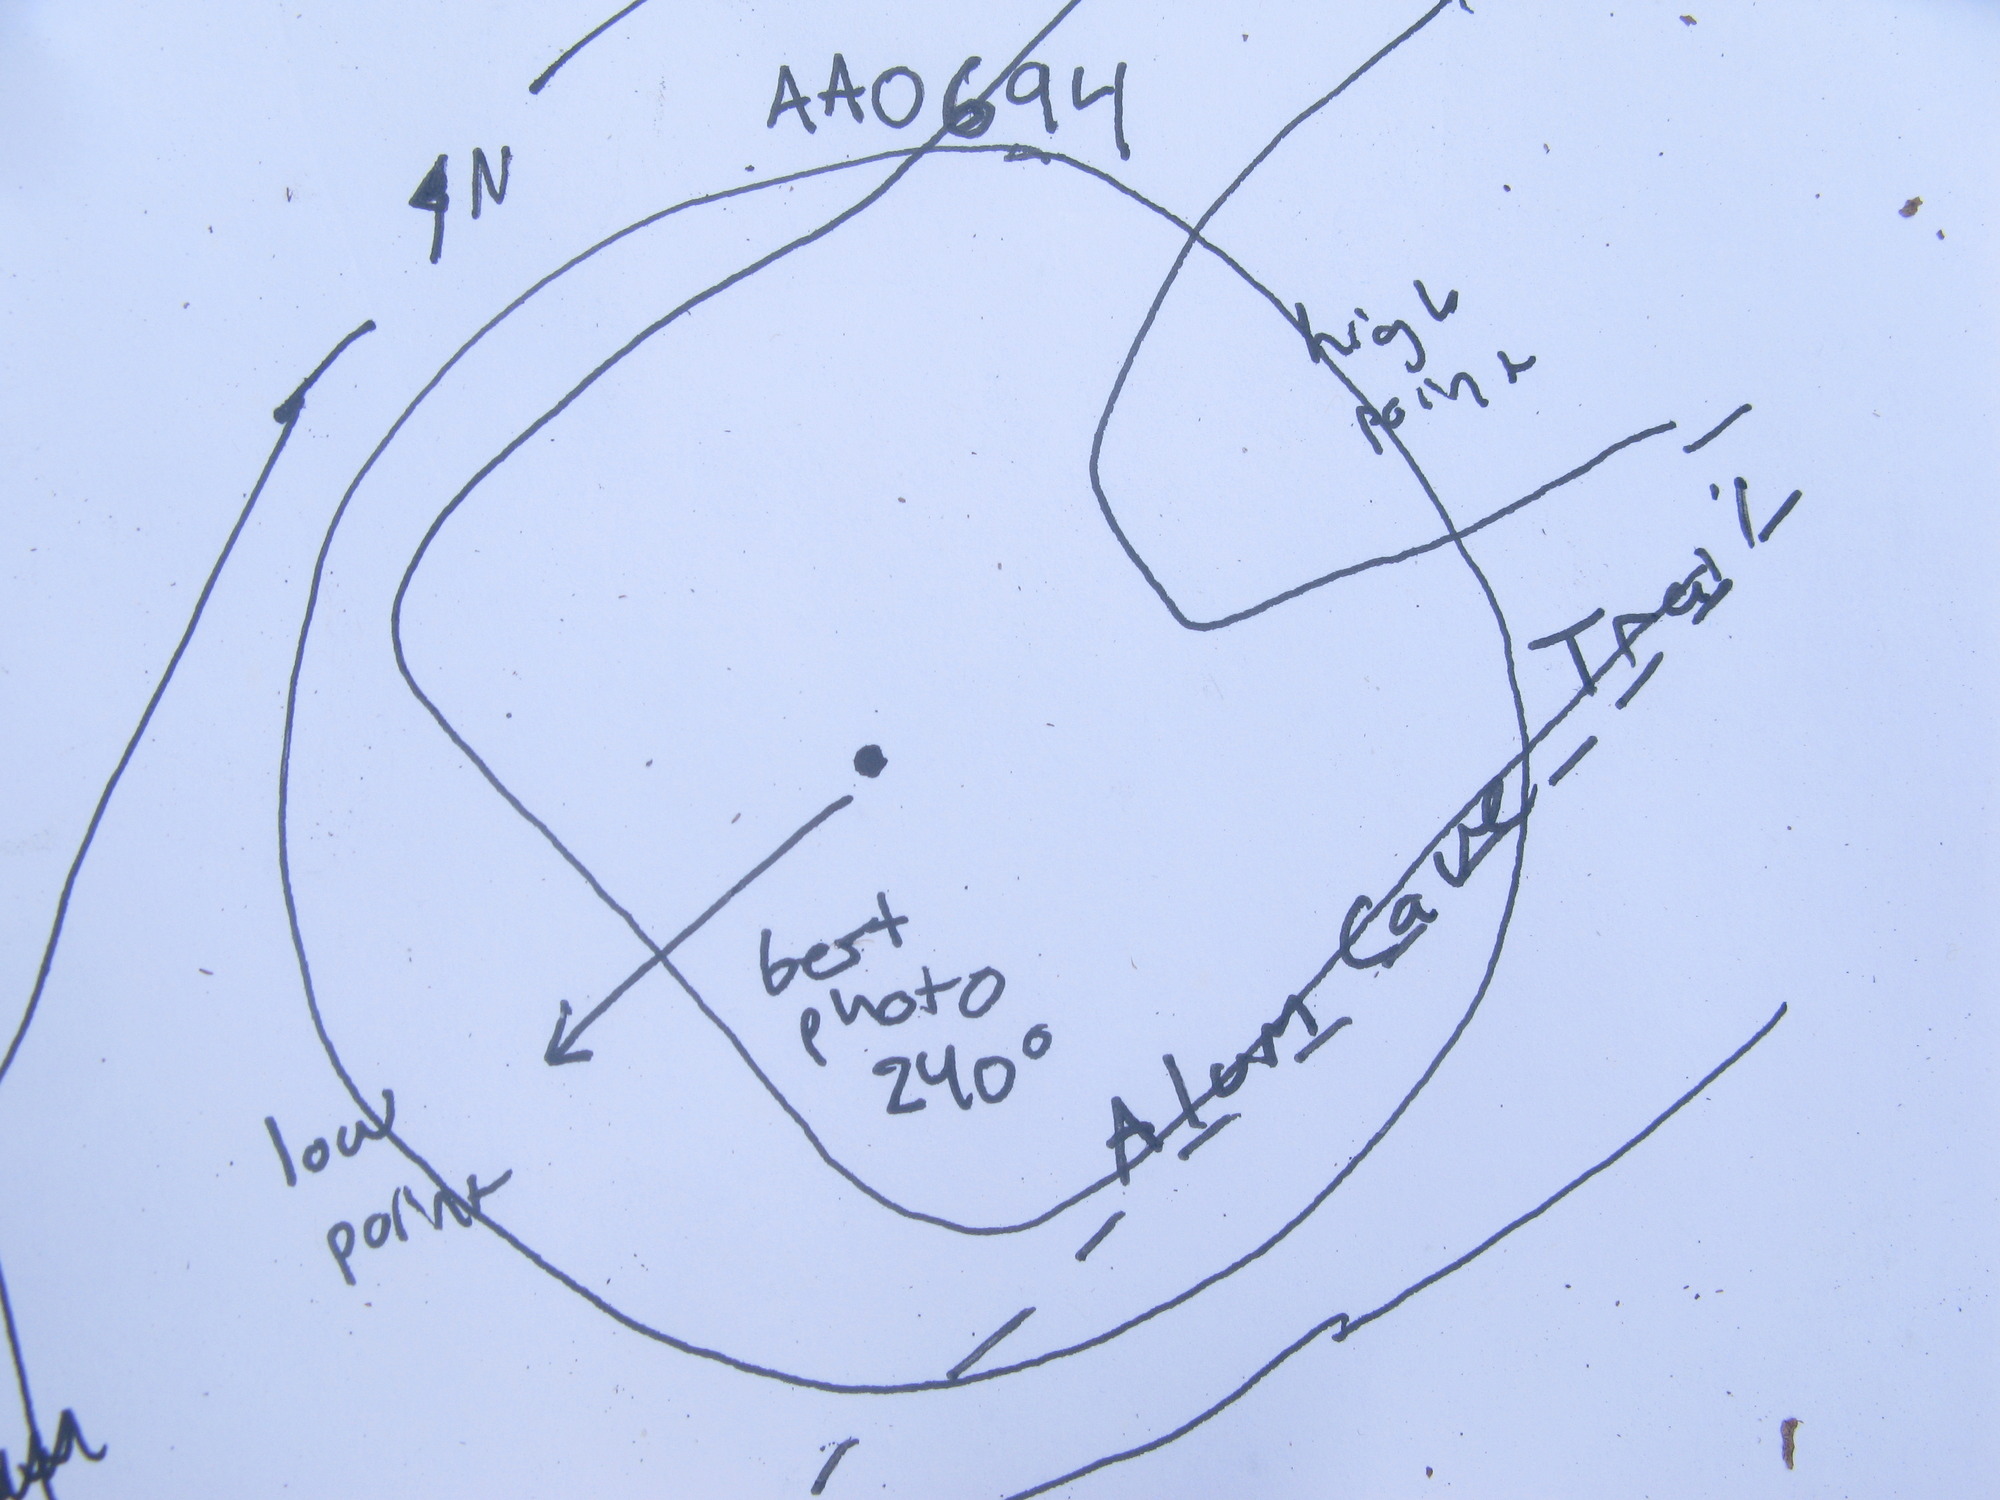 AA0694
N
high
point
Alum Cave Trail
best
photo
240°
low
point